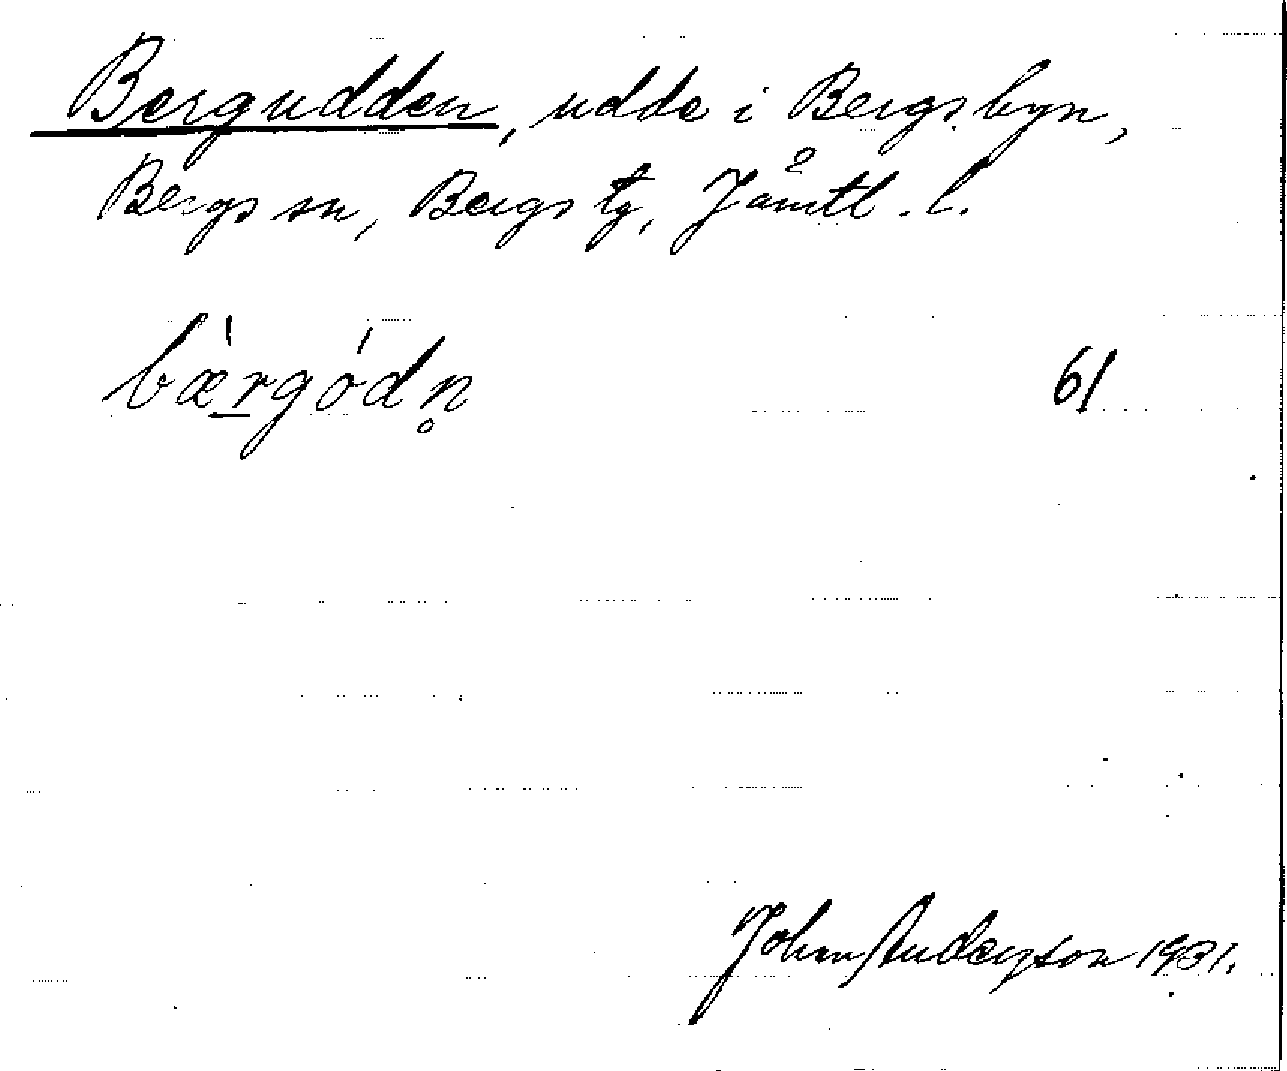 Bergudden, udde i Bergsbyn,
Bergs sn, Bergs tg, Jämtl. l.
bæ̀rgódn̥ 61
Johan Anderson 1931.